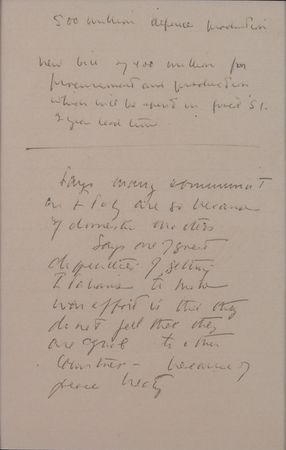 500 million defence production
new bill of 400 million for
procurement and production
which will be spent in fiscal 51.
2 year lead time
Says many communist
in Italy are so because
of domestic matters
Says one of great
difficulties of getting
Italians to make
war effort is that they
do not feel that they
are equal to other
Countries - because of
peace treaty